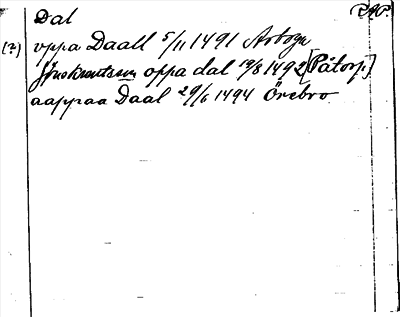 Dal
(?) oppa Daall 5/11 1491 Arboga
oppa dal 19/8 1492 [Påtorp.]
aappaa Daal 29/6 1494 Örebro